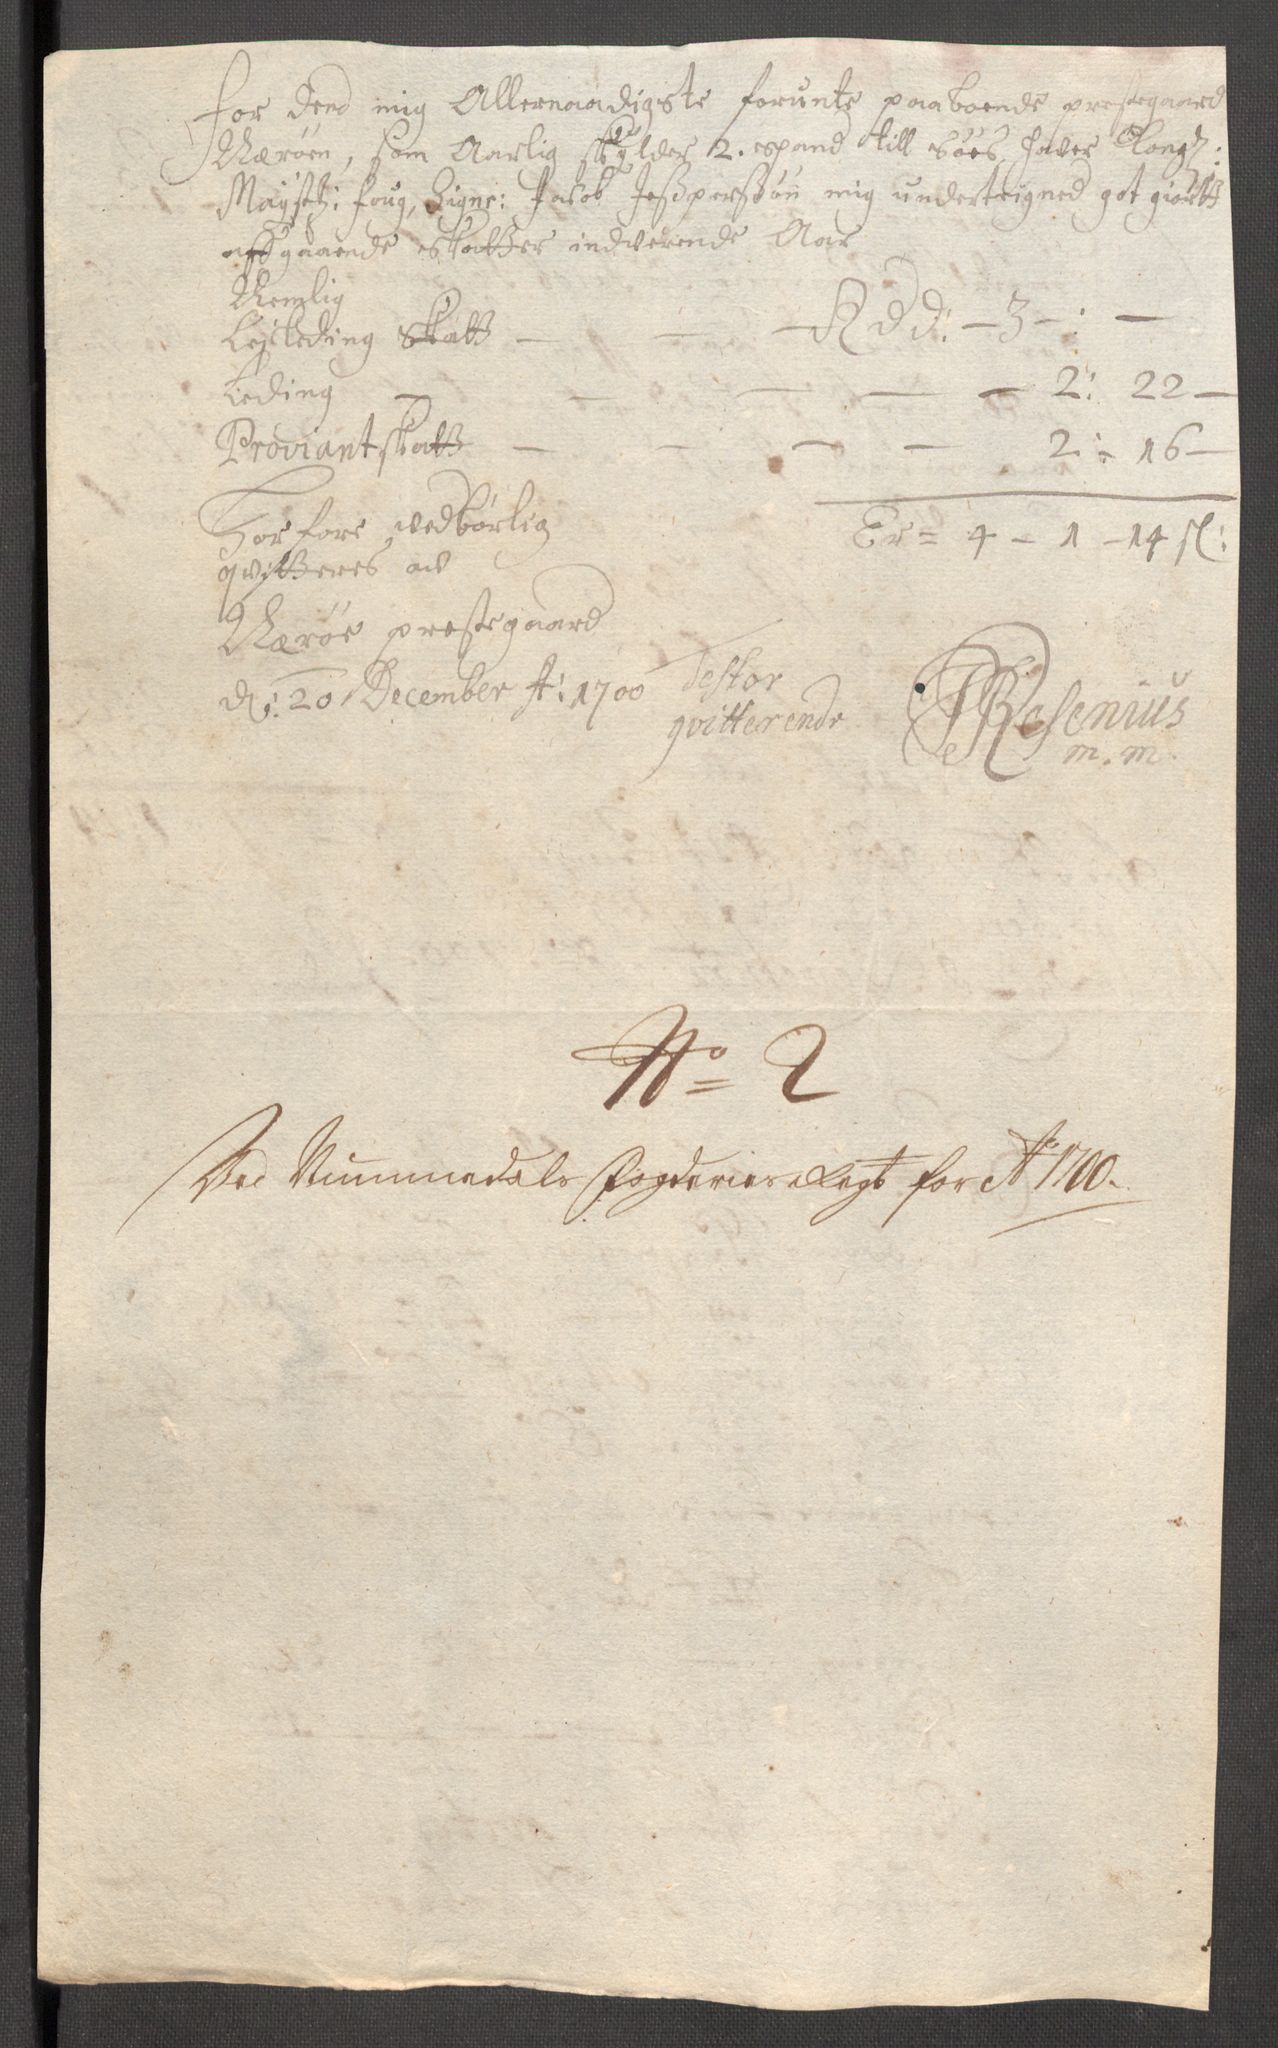 for Dend mig Allernaadigste forunte paaboende prestegaard
Nærøen, som Aarlig skylder 2. spand till Böes, haver Kongl:
Mayestz: foug, Signr: Jacob Jesperssøn mig undertegned got giortt
affgaaende skatter indverende Aar
Nemlig
Lejleding Skatt — — — Rdd: — 3 — : —
Leding — — — — — 2: 22 —
Proviant skatt — — — — 2: 16 —
Er = 4 — 1 — 14 sl:
Hor fore vedbørlig
qvitteres av
Nærøe prestegaard
d: 20 December A: 1700
Testor
qvitterende
Resenius
m. m.
No = 2
Ved Nummedals Fogderies Regsk for Ao 1700.